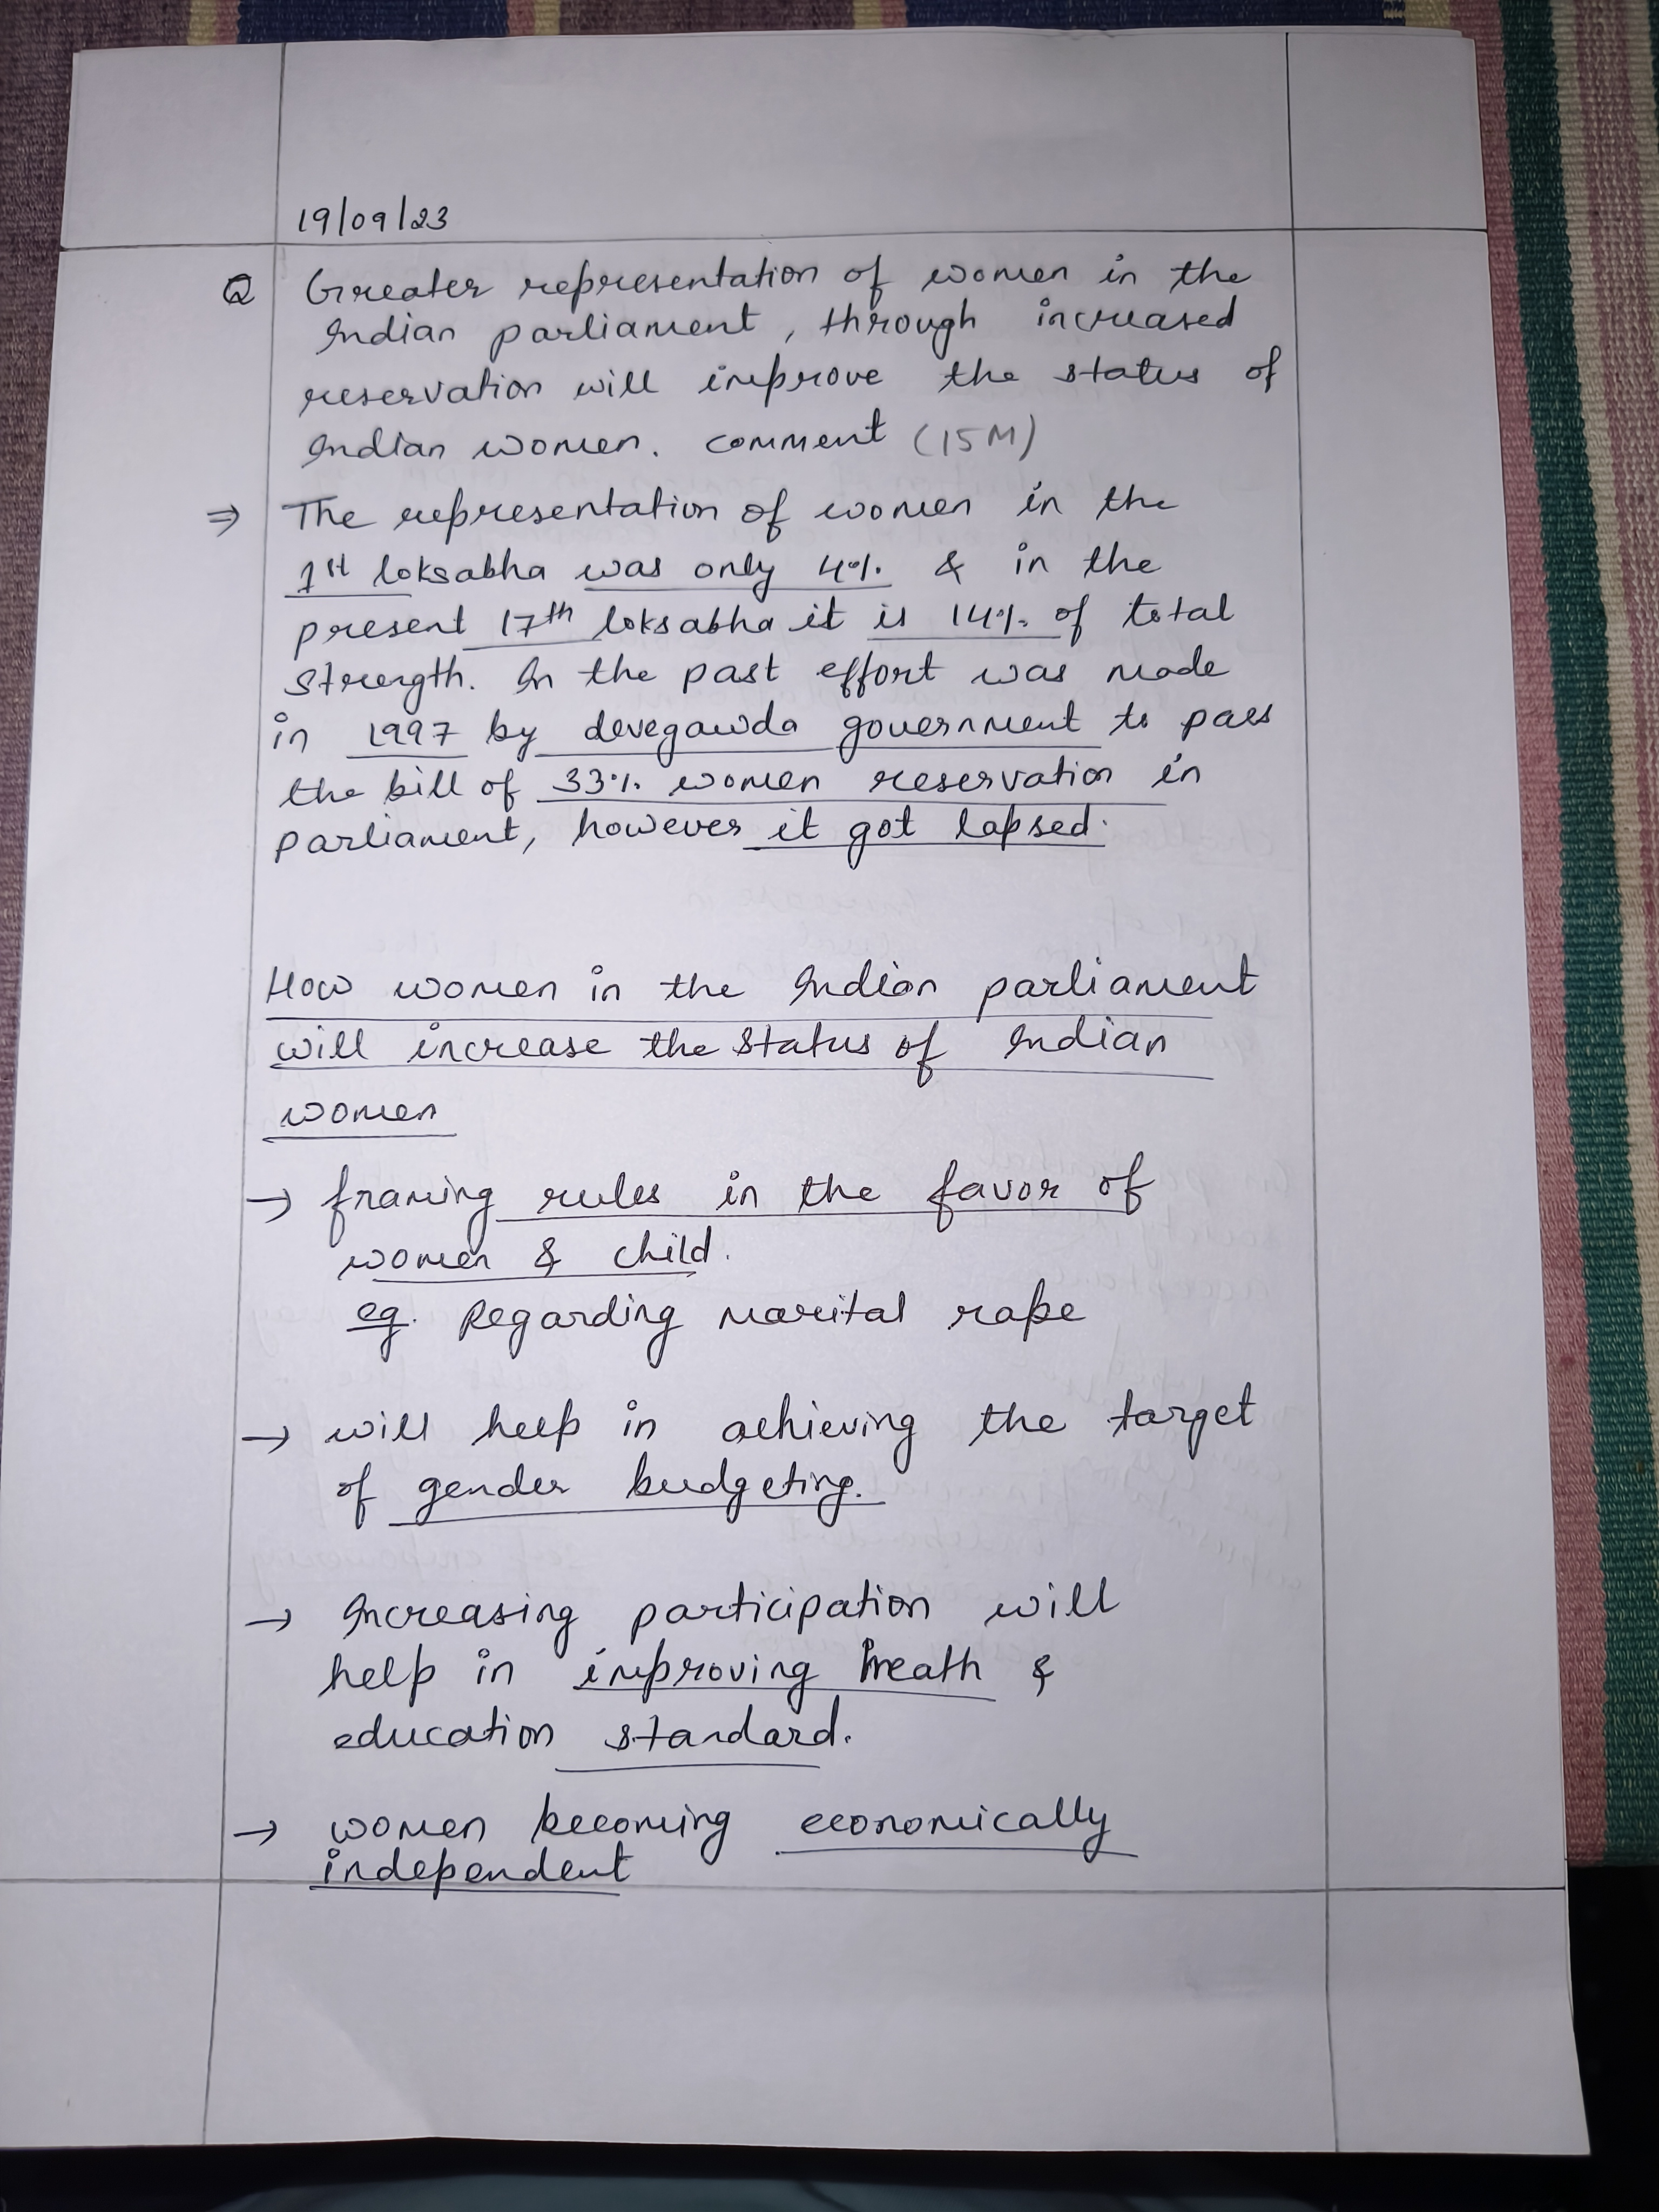 19/09/23
Q Greater representation of women in the
Indian parliament, through increased
reservation will improve the status of
Indian women. comment (15M)
⇒ The representation of women in the
1st loksabha was only 4% & in the
present 17th loksabha it is 14% of total
strength. In the past effort was made
in 1997 by devegawda government to pass
the bill of 33% women reservation in
parliament, however it got lapsed.
How women in the Indian parliament
will increase the status of Indian
women
→ framing rules in the favor of
women & child.
eg. Regarding marital rape
→ will help in achieving the target
of gender budgeting.
→ Increasing participation will
help in improving heath &
education standard.
→ women becoming economically
independent